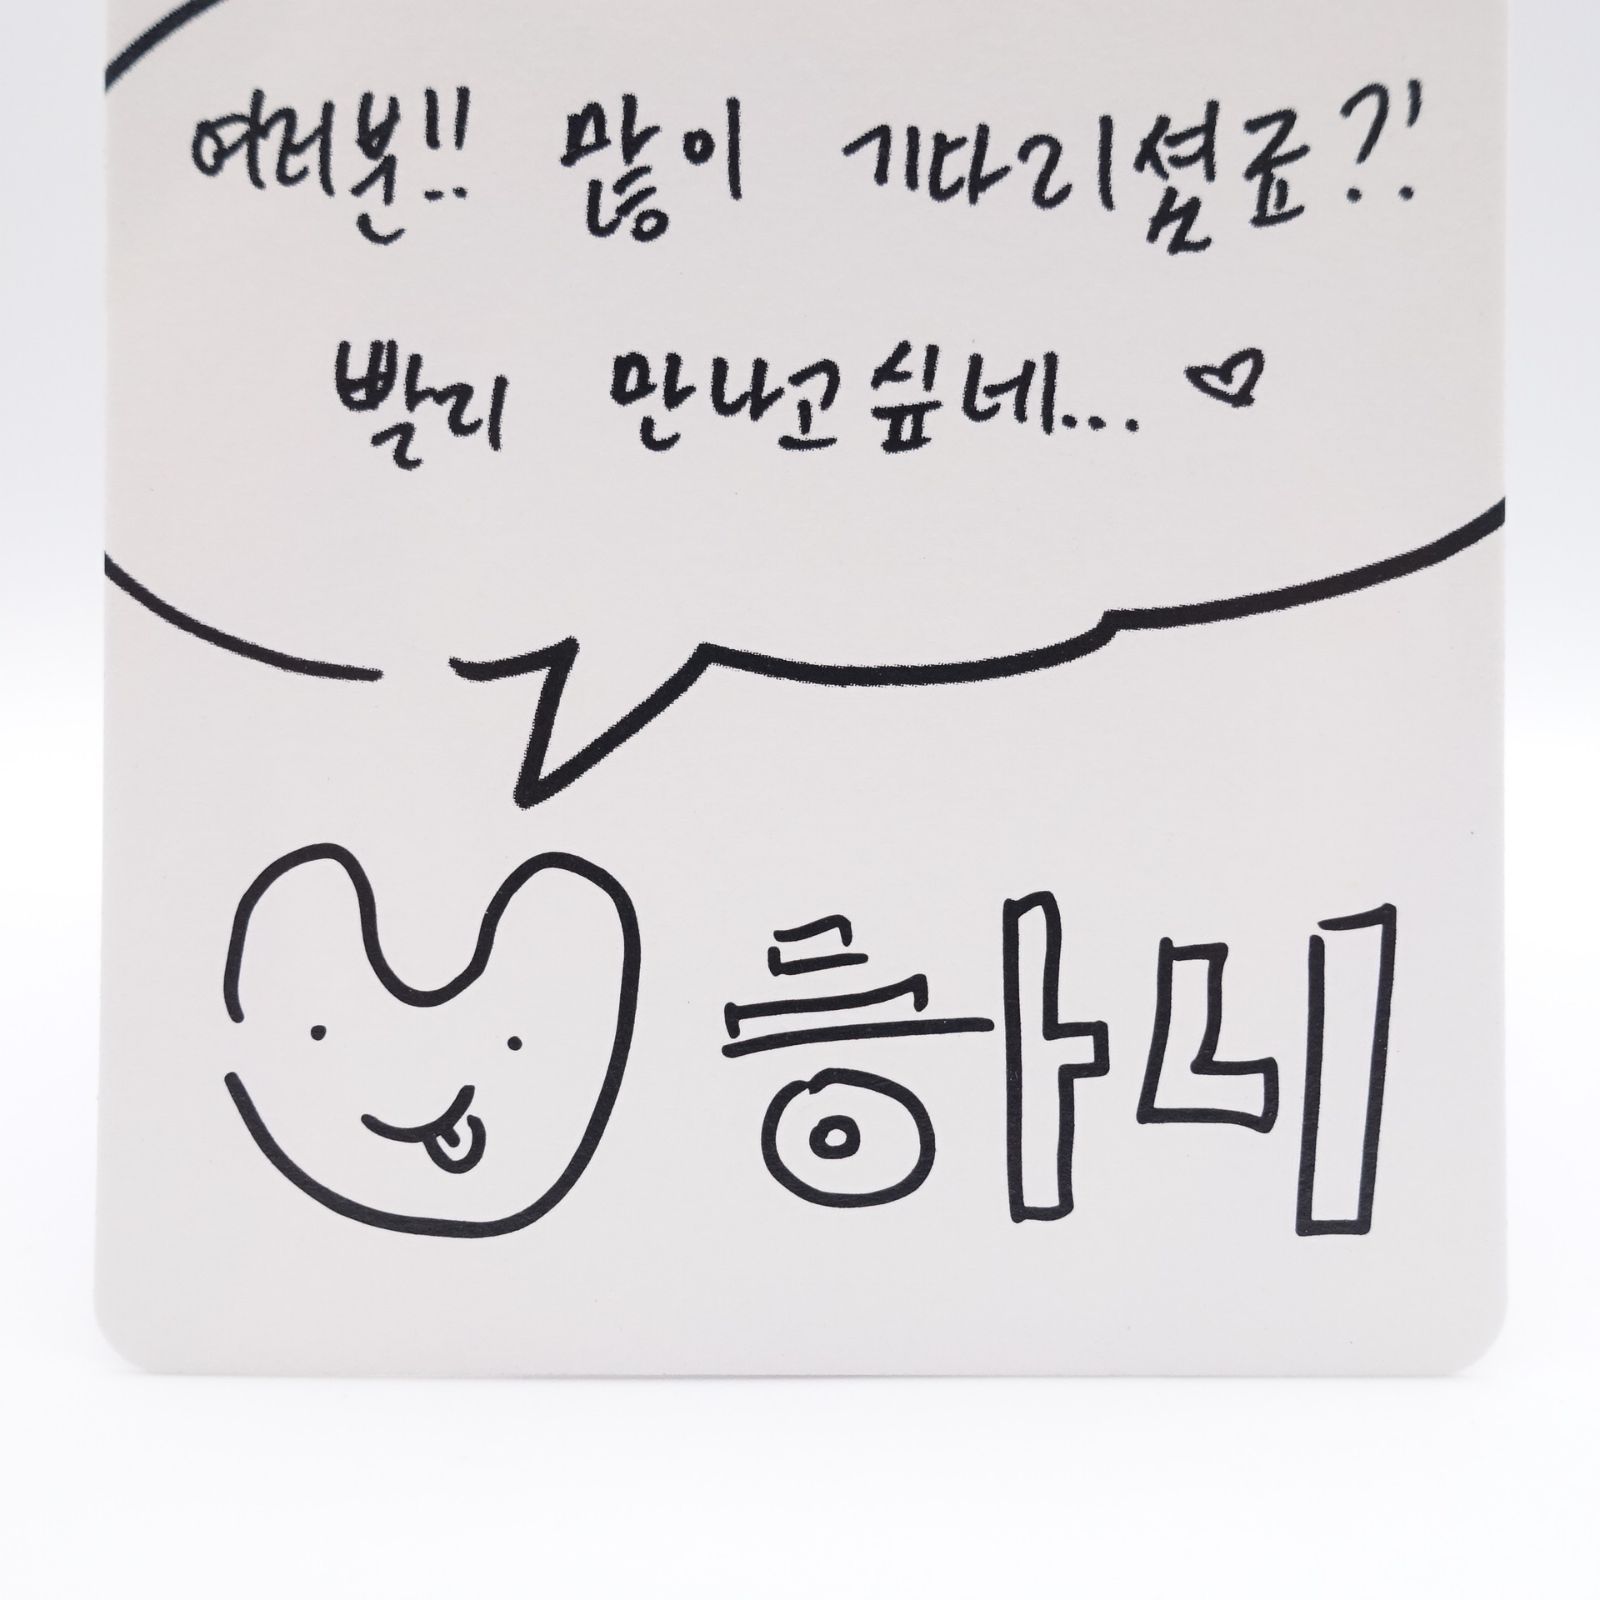 여러분!! 많이 기다리셨죠?!
빨리 만나고싶네... ♡
하니